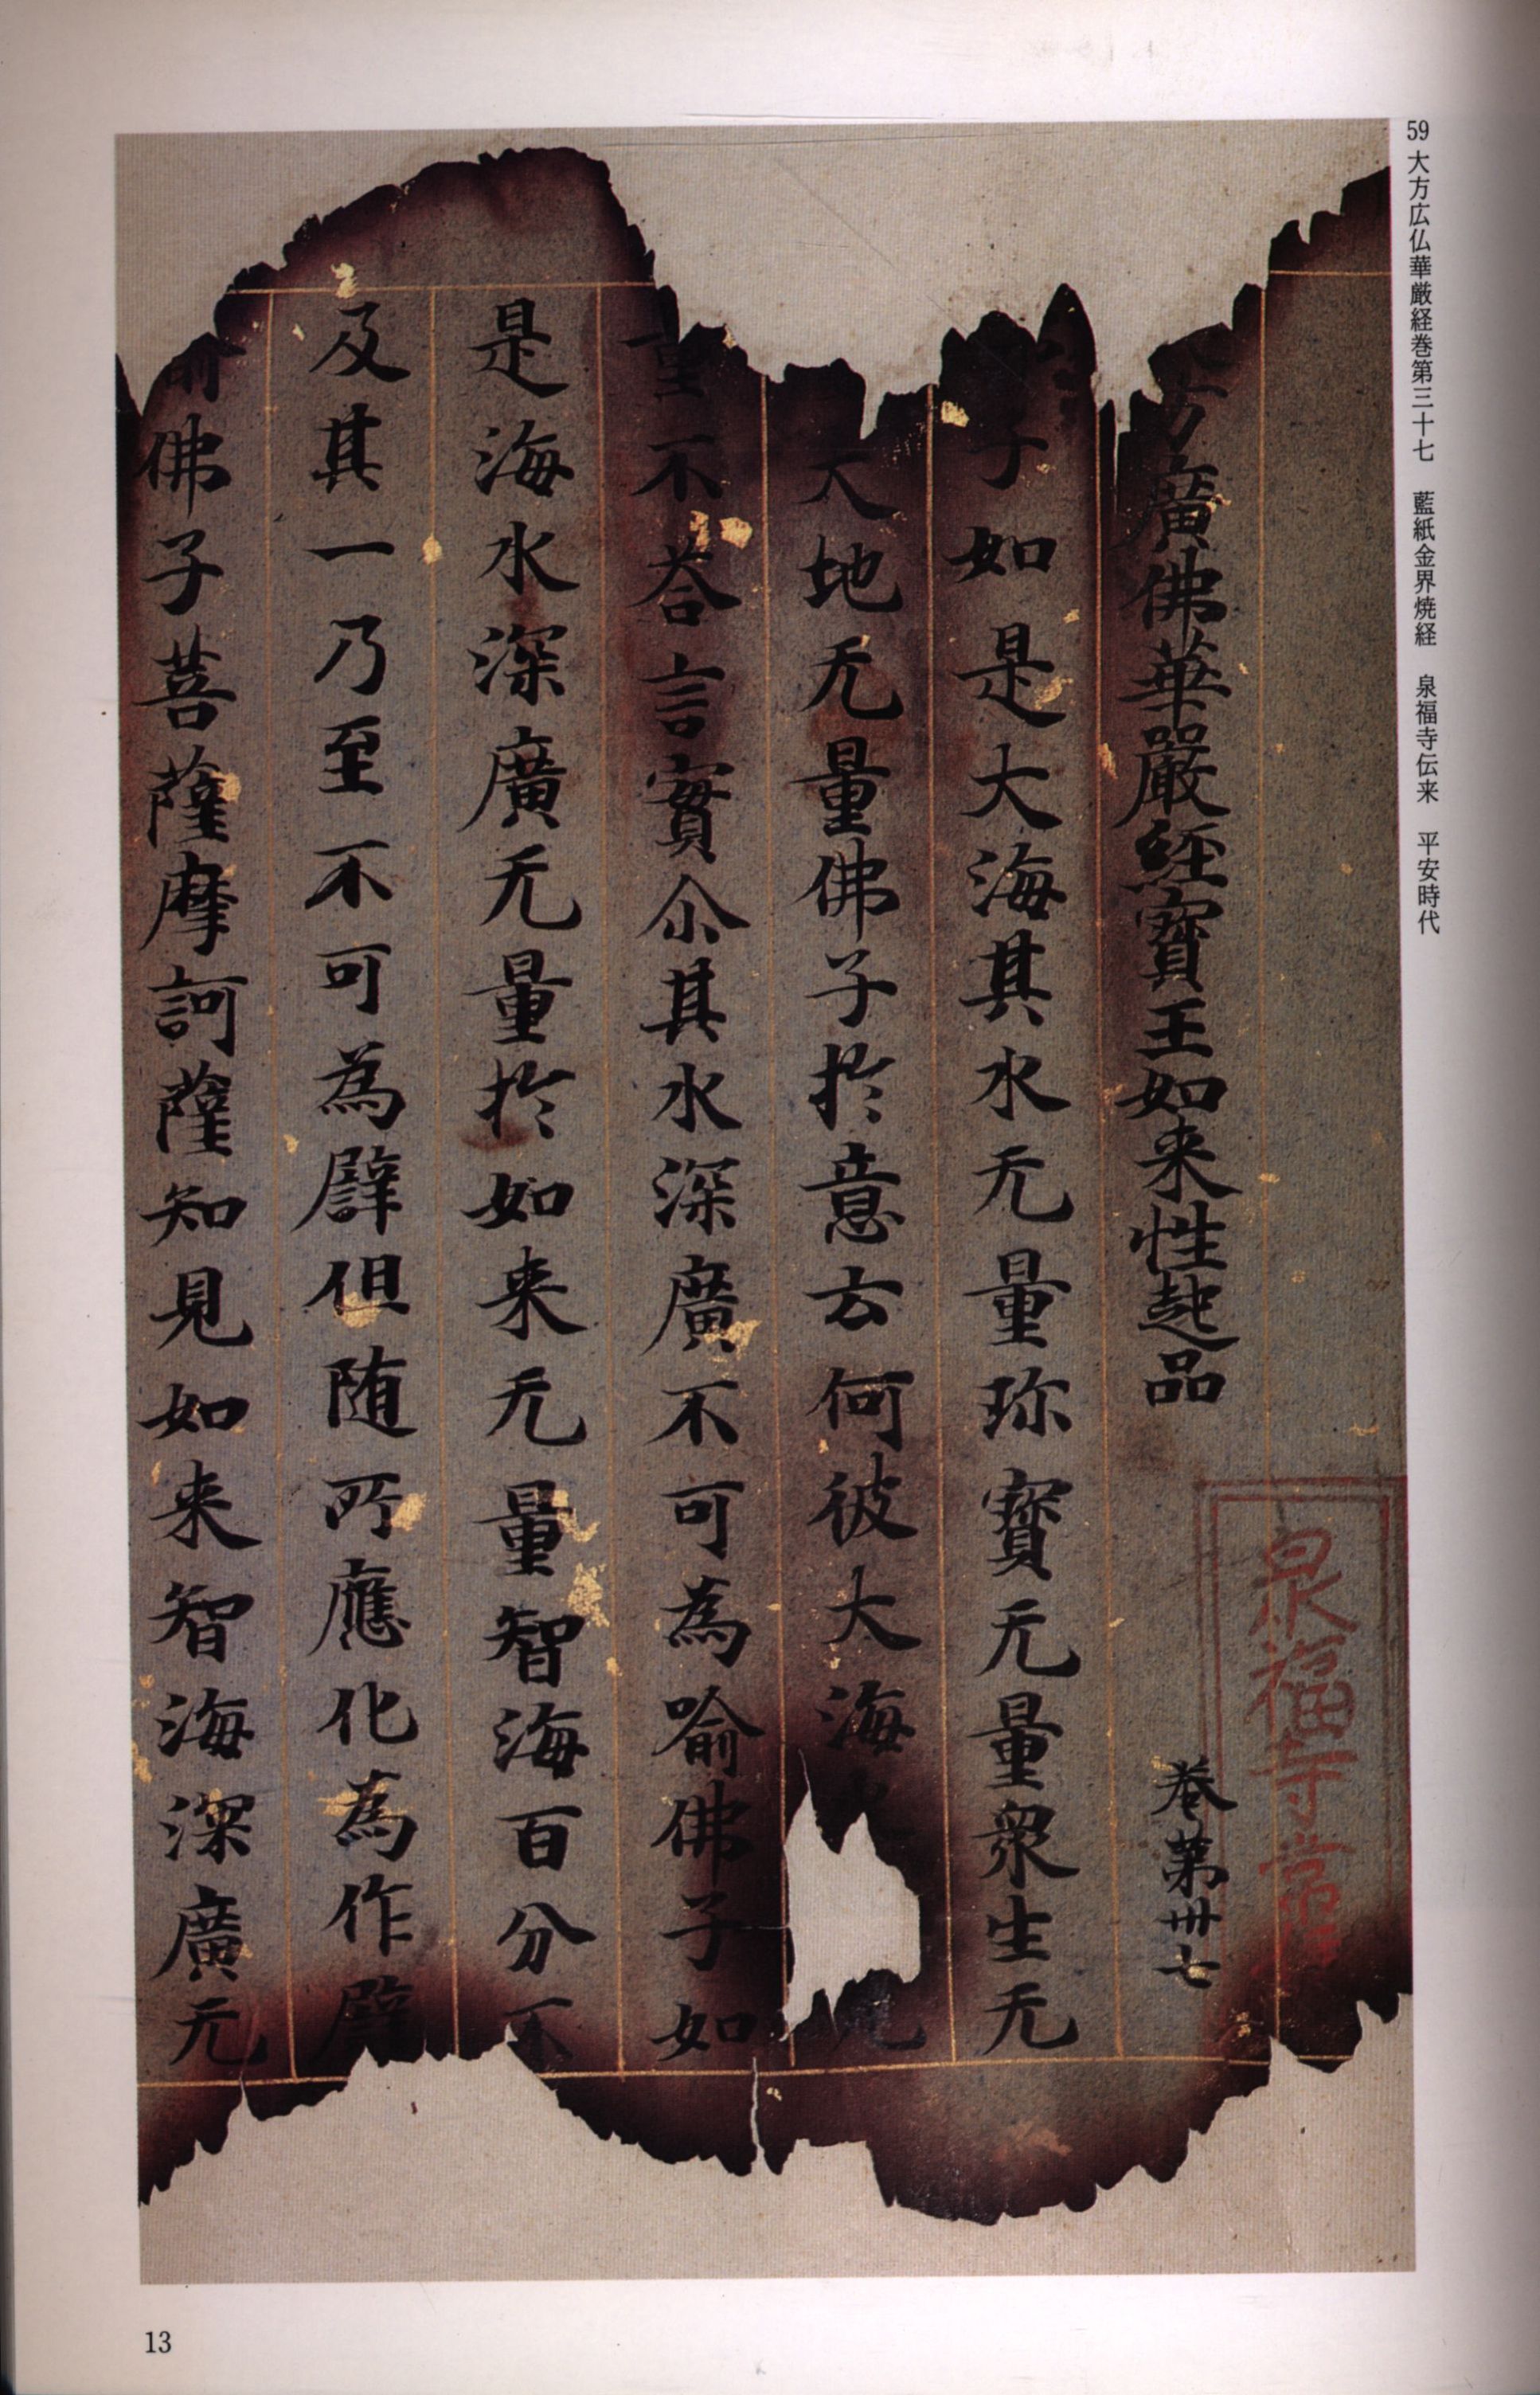 59 大方広仏華厳経巻第三十七 藍紙金界焼経 泉福寺伝来 平安時代
泉福寺常住
方廣佛華嚴經寶王如来性起品 卷第卅七
子如是大海其水无量珎寶无量衆生无
大地无量佛子扵意云何彼大海
量不荅言實尒其水深廣不可為喻佛子如
是海水深廣无量扵如来无量智海百分不
及其一乃至不可為譬但随所應化為作譬
喻佛子菩薩摩訶薩知見如来智海深廣无
13